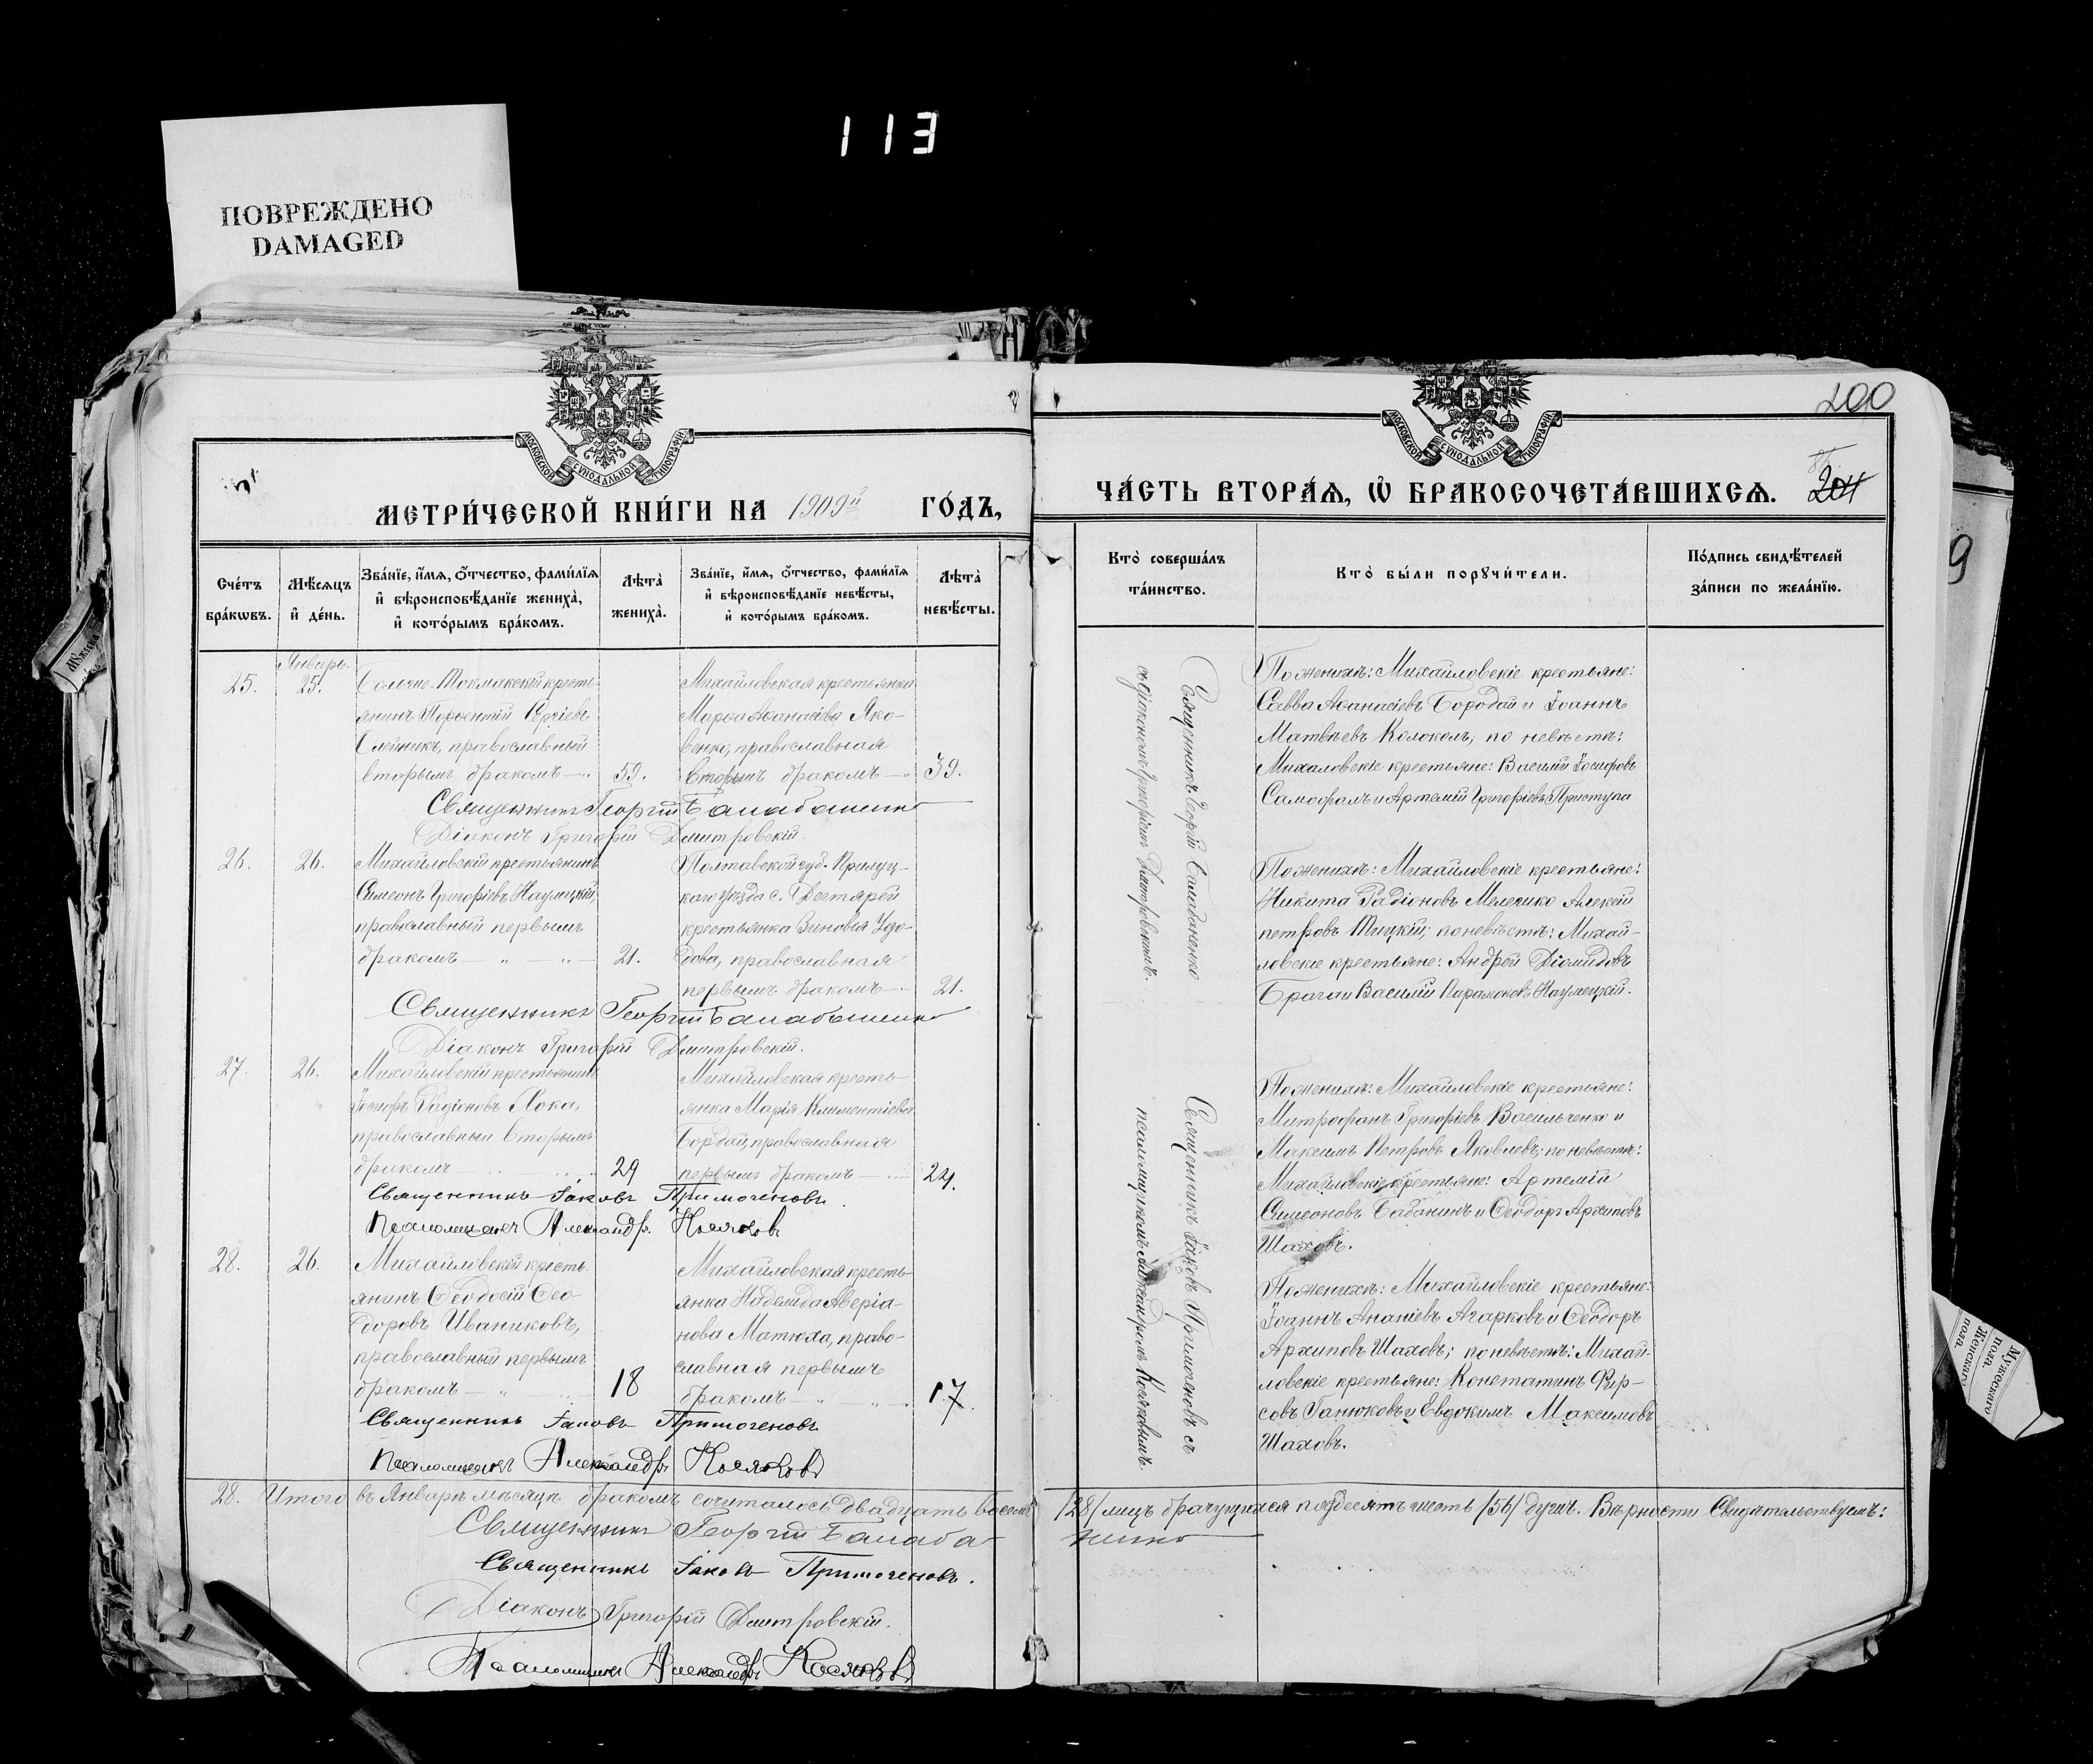 113
ПОВРЕЖДЕНО
DAMAGED
200
МОСКОВСКОЙ СѴНОДАЛЬНОЙ ТИПОГРАФІИ
МОСКОВСКОЙ СѴНОДАЛЬНОЙ ТИПОГРАФІИ
МЕТРИ́ЧЕСКОЙ КНИ́ГИ НА 1909й ГО́ДЪ,
ЧА́СТЬ ВТОРА́Я, Ѡ҆ БРАКОСОЧЕТА́ВШИХСЯ. 201
Сче́тъ
бра́кѡвъ.
Мѣ́сяцъ
и҆ де́нь.
Зва́нїе, и҆́мя, о҆́тчество, фами́лїя
и҆ вѣроисповѣ́данїе жениха̀,
и҆ кото́рымъ бра́комъ.
Лѣта̀
жениха̀.
Зва́нїе, и҆́мя, о҆́тчество, фами́лїя
и҆ вѣроисповѣ́данїе невѣ́сты,
и҆ кото́рымъ бра́комъ.
Лѣта̀
невѣ́сты.
Кто̀ соверша́лъ
та́инство.
Кто̀ бы́ли порꙋчи́тели.
По́дпись свидѣ́телей
за́писи по жела́нїю.
Январь.
25.
25.
Больше-Токмакскій кресть-
янинъ Порфентій Сергіевъ
Олейникъ, православный
вторымъ бракомъ
59.
Михайловская крестьянка
Марѳа Аѳанасіева Яко-
венко, православная
вторымъ бракомъ
39.
Священникъ Георгій Балабаненко
Діаконъ Григорій Дмитровскій.
26.
26.
Михайловскій крестьянинъ
Симеонъ Григоріевъ Наумецкій,
православный первымъ
бракомъ
21.
Полтавской губ. Прилуц-
каго уѣзда с. Дегтярей
крестьянка Зиновія Удо-
дова, православная
первымъ бракомъ
21.
Священникъ Георгій Балабаненко
Діаконъ Григорій Дмитровскій.
27.
26.
Михайловскій крестьянинъ
Іосифъ Радіоновъ Лока,
православный вторымъ
бракомъ
29
Михайловская кресть-
янка Марія Климентіева
Бордай, православная
первымъ бракомъ
24.
Священникъ Іаковъ Примогеновъ.
Псаломщикъ Александръ Косяковъ
28.
26.
Михайловскій кресть-
янинъ Ѳеодосій Ѳео-
доровъ Иваниковъ,
православный первымъ
бракомъ
18
Михайловская кресть-
янка Надежда Аверіа-
нова Матюха, право-
славная первымъ
бракомъ
17.
Священникъ Іаковъ Примогеновъ
Псаломщикъ Александръ Косяковъ
Священникъ Георгій Балабаненко
съ діакономъ Григоріемъ Дмитровскимъ.
Священникъ Іаковъ Примогеновъ съ
псаломщикомъ Александромъ Косяковымъ.
По женихѣ: Михайловскіе крестьяне:
Савва Аѳанасіевъ Бородай и Іоаннъ
Матвѣевъ Колоколъ; по невѣстѣ:
Михаловскіе крестьяне: Василій Іосифовъ
Самофалъ и Артемій Григоріевъ Приступа
По женихѣ: Михайловскіе крестьяне:
Никита Радіоновъ Мелешко Алексій
петровъ Тицкій; по невѣстѣ: Михай-
ловскіе крестьяне: Андрей Діомидовъ
Брага и Василій Парамоновъ Наумецкій.
По женихѣ: Михайловскіе крестьяне:
Митрофанъ Григоріевъ Васильченко и
Максимъ Петровъ Яковлевъ; по невѣстѣ:
Михайловскіе крестьяне: Артемій
Симеоновъ Бабанинъ и Ѳеодоръ Архиповъ
Шаховъ.
По женихѣ: Михайловскіе крестьяне:
Іоаннъ Ананіевъ Агарковъ и Ѳеодоръ
Архиповъ Шаховъ; по невѣстѣ: Михай-
ловскіе крестьяне: Констатинъ Фир-
совъ Ганюковъ и Евдокимъ Максимовъ
Шаховъ.
28. Итого въ Январѣ мѣсяцѣ бракомъ сочиталось двадцать восемь /28/ лицъ брачущихся пядесятъ шесть /56/ душъ. Вѣрность Свидѣтельствуемъ:
Священникъ Георгій Балаба-
ненко
Священникъ Іаковъ Примогеновъ.
Діаконъ Григорій Дмитровскій.
Псаломщикъ Александръ Косяковъ
Мужескаго
пола.
Женскаго
пола.